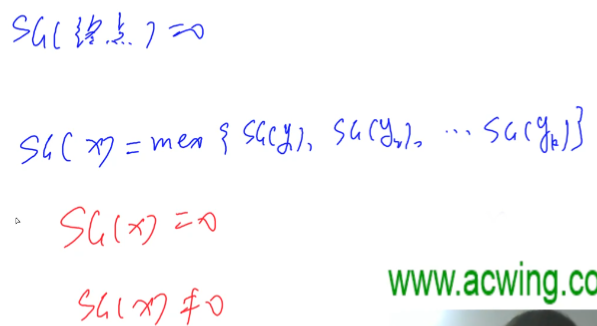 SG(终点)=0
SG(x)=mex{SG(y₁), SG(y₂), ... SG(yₖ)}
SG(x)=0
SG(x)≠0
www.acwing.co